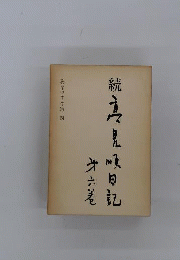 続
高見順日記
第六巻